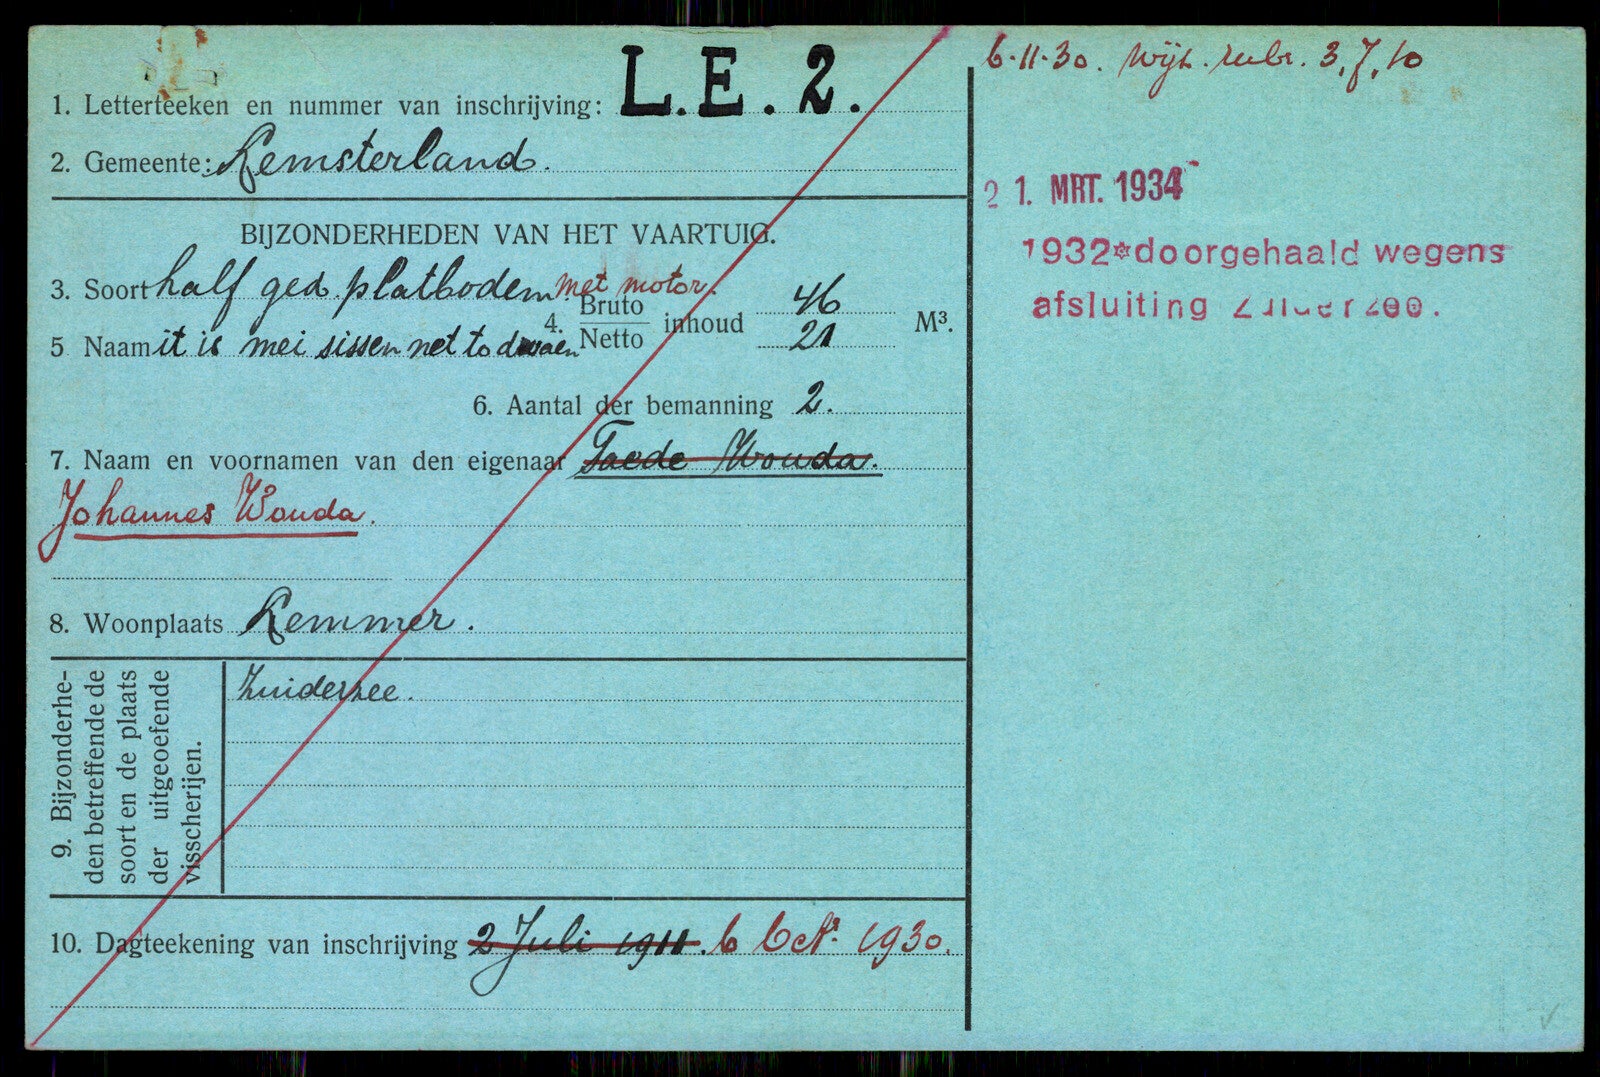 1. Letterteeken en nummer van inschrijving: L.E. 2.
2. Gemeente: Lemsterland.
BIJZONDERHEDEN VAN HET VAARTUIG.
3. Soort half ged. platbodem met motor.
4. Bruto inhoud 46
Netto 21 M³.
5 Naam it is mei sissen net to dwaen
6. Aantal der bemanning 2.
7. Naam en voornamen van den eigenaar Taede Wouda.
Johannes Wouda.
8. Woonplaats Lemmer.
9. Bijzonderhe-
den betreffende de
soort en de plaats
der uitgeoefende
visscherijen.
Zuiderzee.
10. Dagteekening van inschrijving 2 Juli 1911. 6 Oct. 1930.
6-11-30. Wijz. rubr. 3, 7, 10
21. MRT. 1934
1932*doorgehaald wegens
afsluiting Zuiderzee.